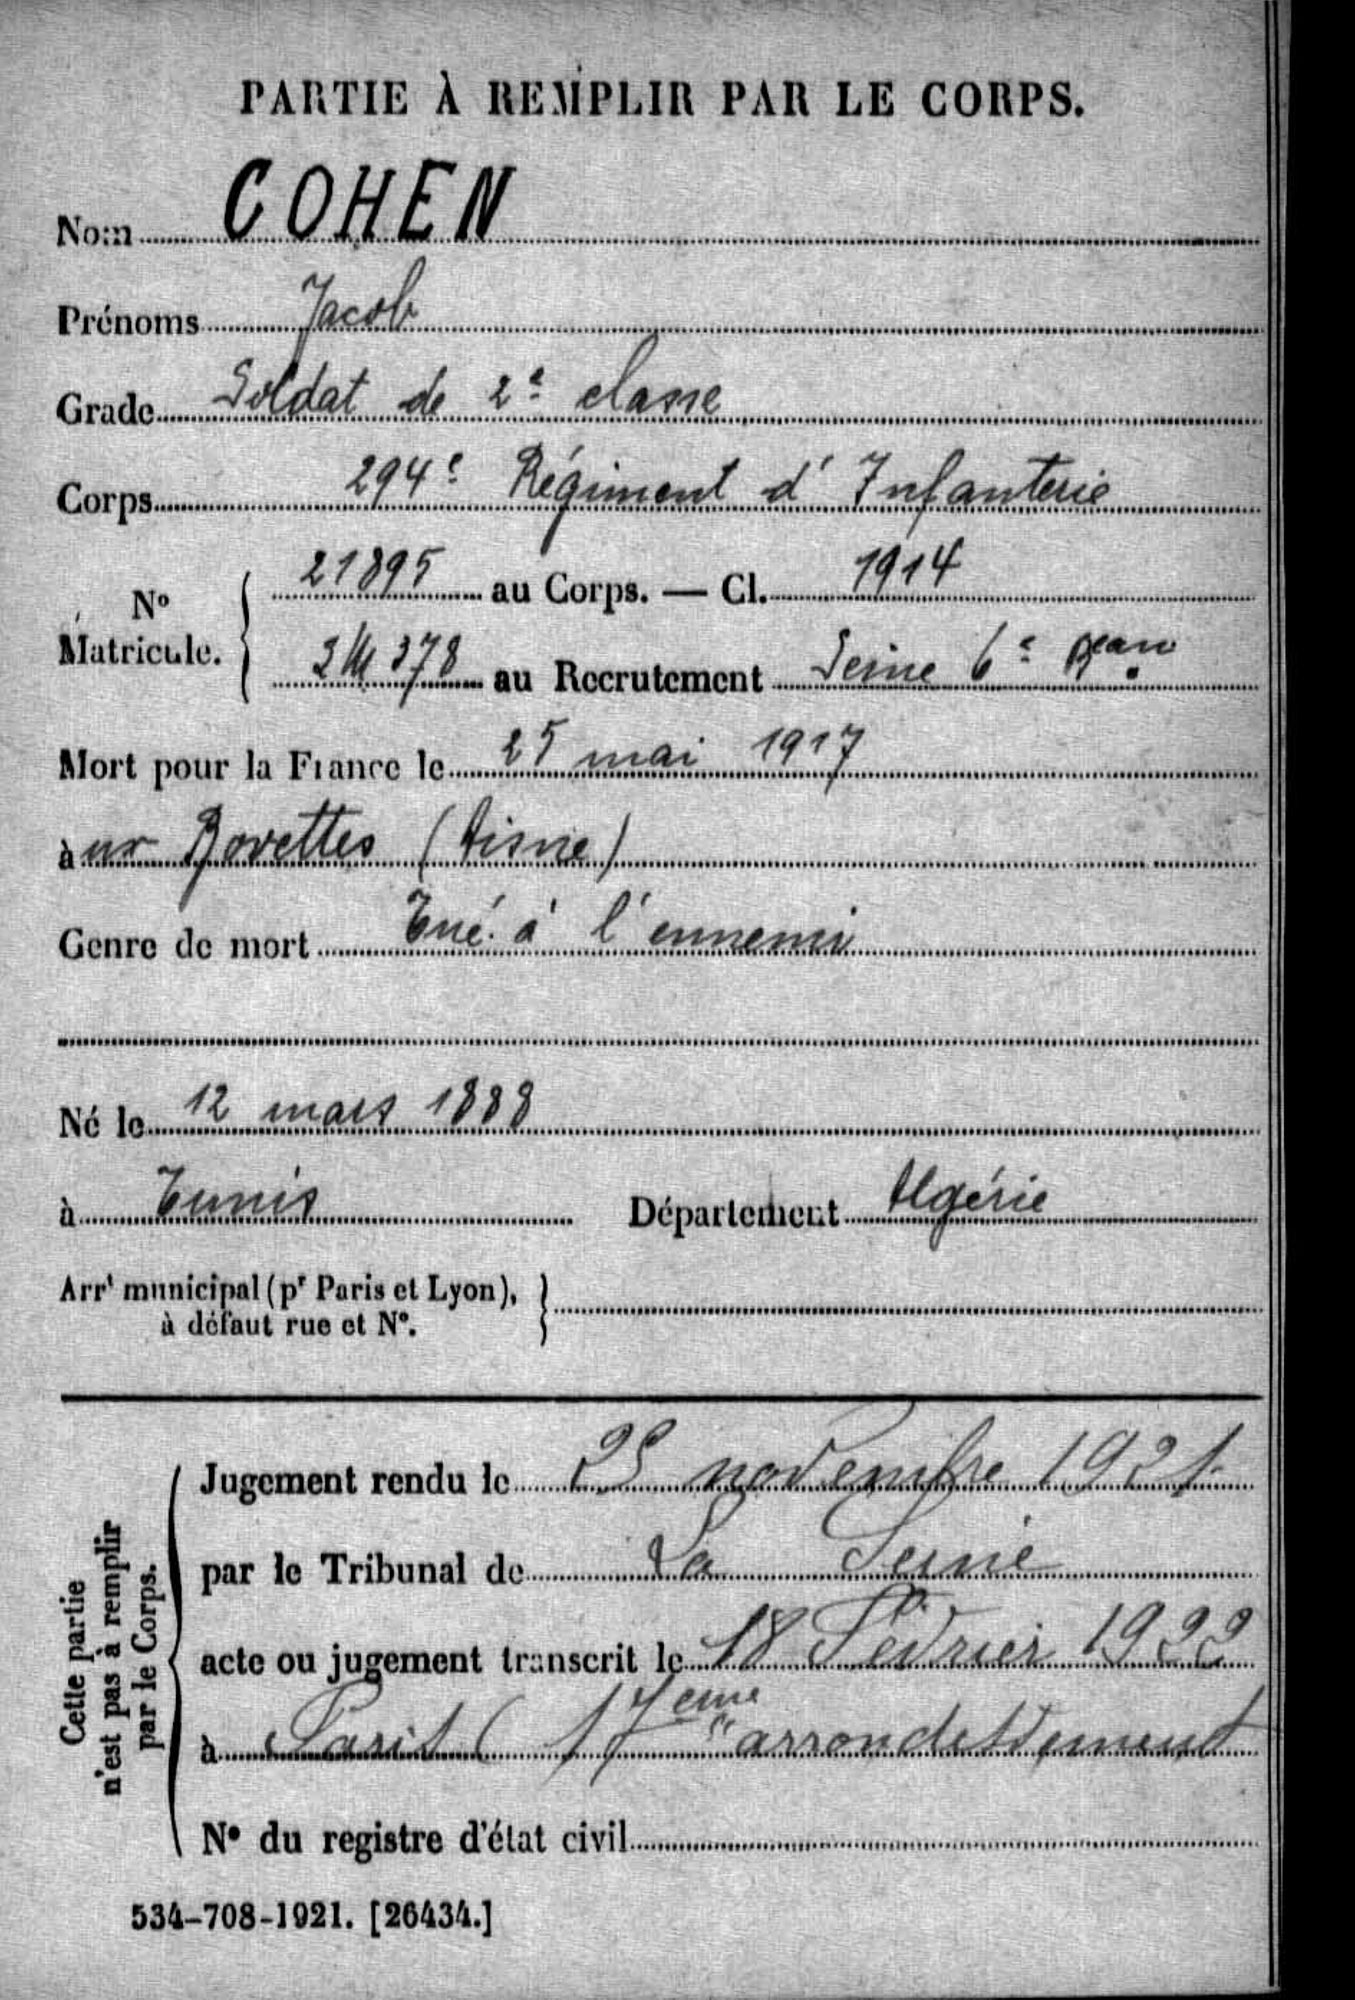 PARTIE À REMPLIR PAR LE CORPS.
Nom COHEN
Prénoms Jacob
Grade Soldat de 2e classe
Corps 294e Régiment d'Infanterie
No Matricule. 21895 au Corps. — Cl. 1914
378 au Recrutement Seine 6e Beau
Mort pour la France le 25 mai 1917
à ux Bovettes (Aisne)
Genre de mort Tué à l'ennemi
Né le 12 mars 1888
à Tunis Département Algérie
Arrt municipal (pr Paris et Lyon),
à défaut rue et No.
Cette partie
n'est pas à remplir
par le Corps.
Jugement rendu le 25 novembre 1921
par le Tribunal de La Seine
acte ou jugement transcrit le 18 Février 1922
à Paris (17eme arrondissement
No du registre d'état civil
534-708-1921. [26434.]